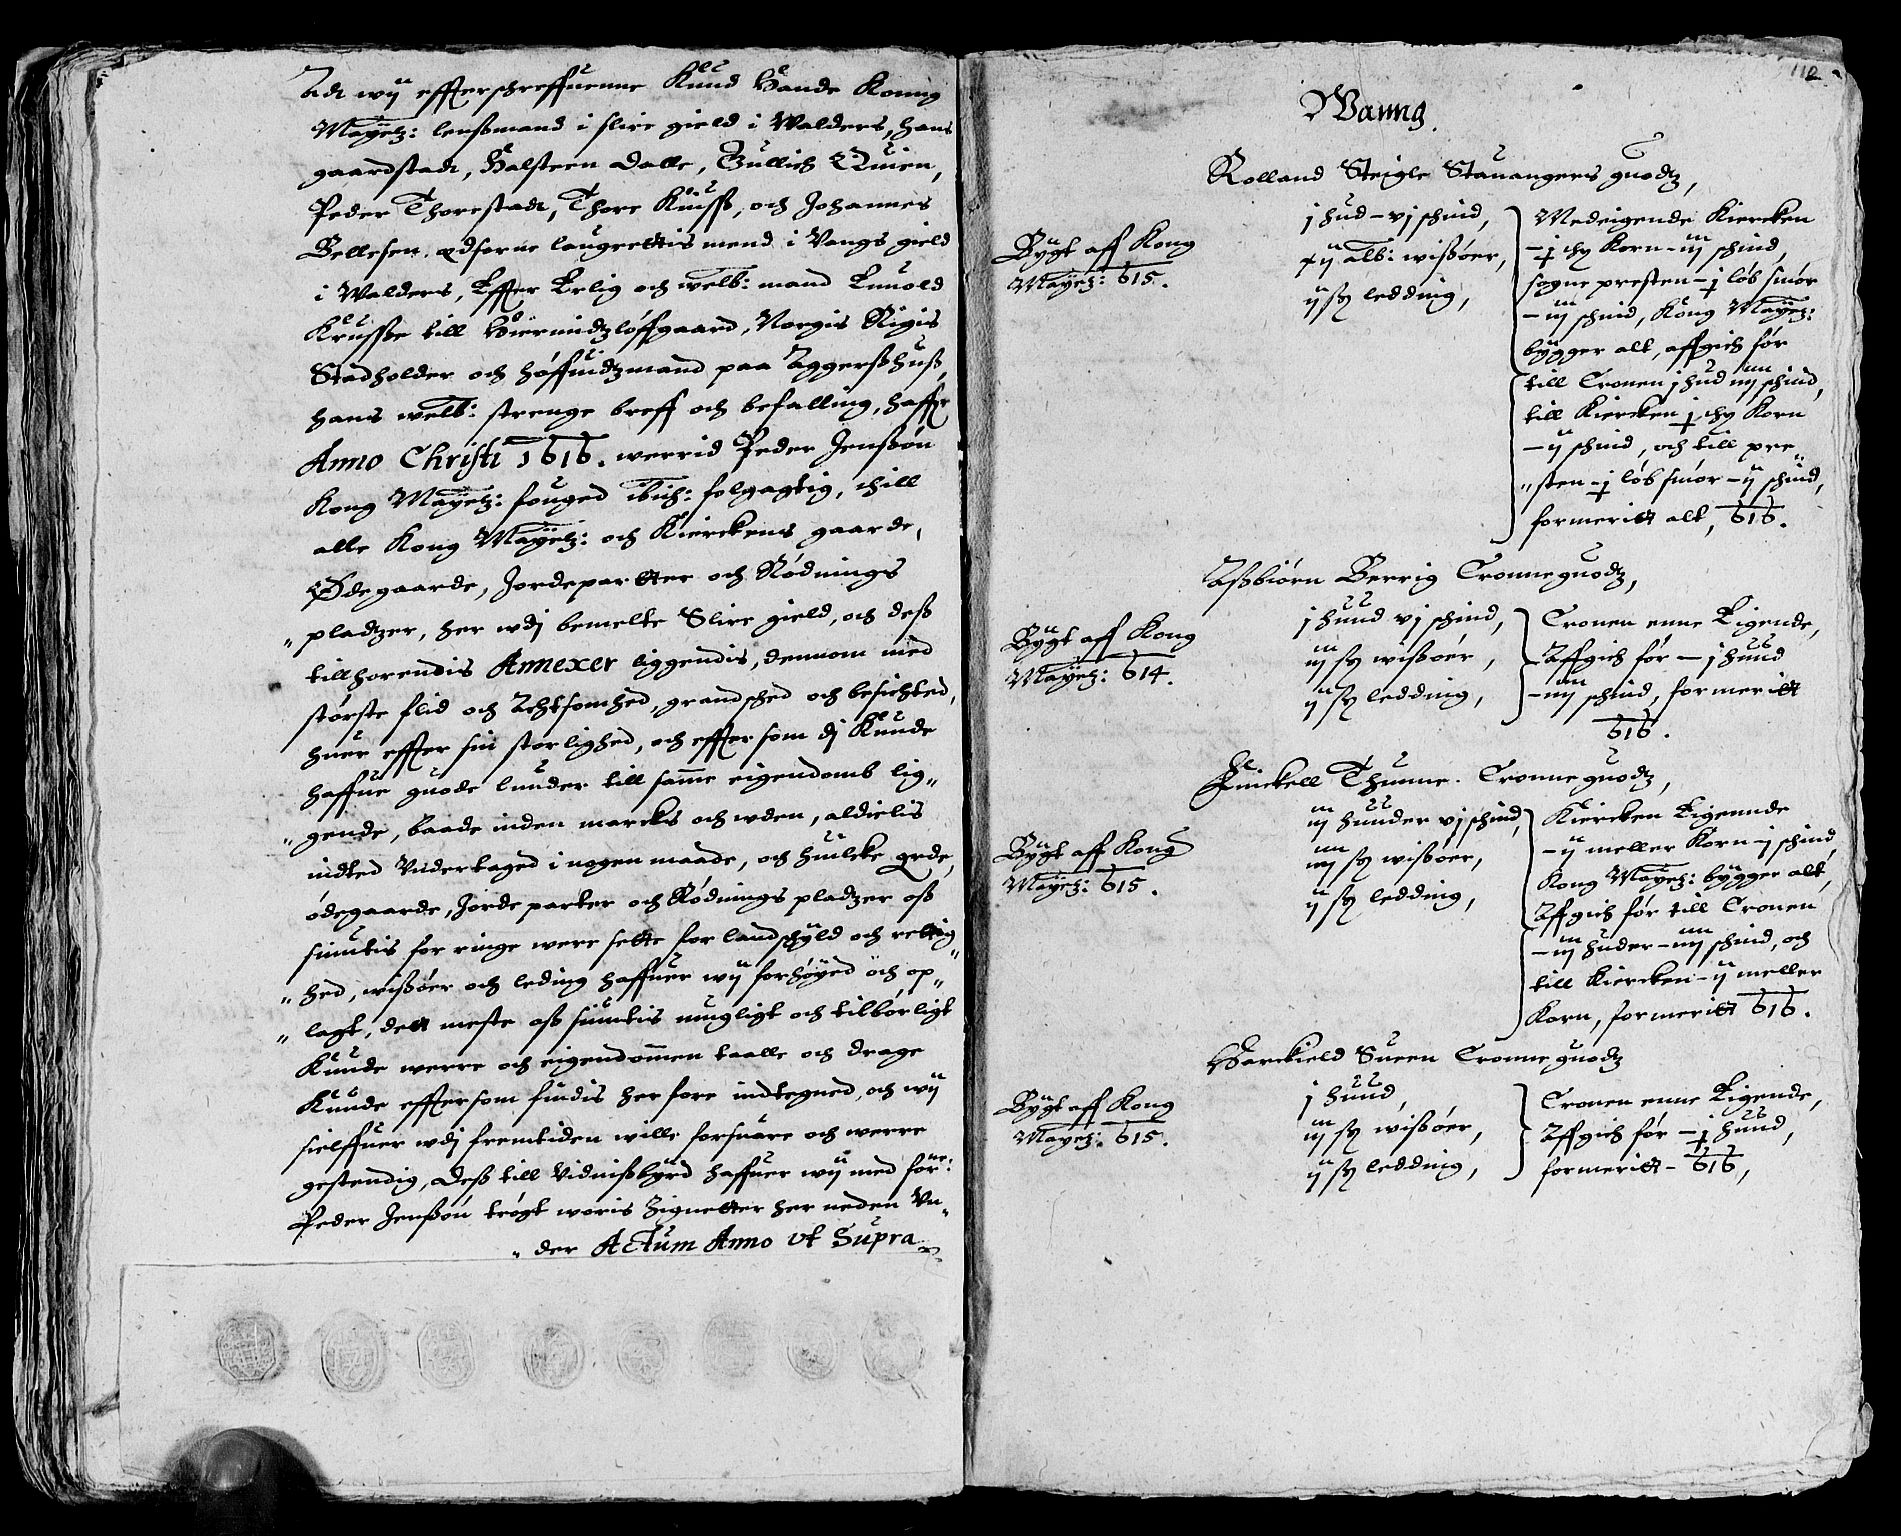 Adt wij effterschreffuenne Knud Hande Konng
Mayetz: lensmand i slire gield i Walders, hans
gaardstadt, Halsteen Dalle, Gullich Quien,
Peder Thorestadt, Thore Kuiss, och Johannes
Bellesen, edsorne laugrettis mend i Vangs gield
i Walders, Effter Erlig och welb: mand Enuold
Krusse till Hiermidtzløffgaard, Norgis Rigis
Stadholder och høffuidtzmand paa Aggershus,
hans welb: strenge breff och befalling, haffr
Anno Christi 1616. werrid Peder Jensøn
Kong Mayetz: fouged ibid: følgagtig, till
alle Kong Mayetz: och Kierckens gaarde,
Ødegaarde, Jordepartter och Rødnings
„ pladtzer, her wdj bemelte Slire gield, och des
tillhorendis Annexer liggendis, dennom med
største flid och Achtsomhed, grandsched och besichted,
huer effter sin storlighed, och efftersom dj Kunde
haffue guode lunder till samme eigendomb lig„
„ gende, baade inden marcks och wden, aldielis
indted Vndertaged i nogen maade, och huilcke grde,
ødegaarde, Jorde parter och Rødnings pladtzer os
siuntis for ringe were sette for landschyld och rettig„
„ hed, wissøer och leding haffuer wij forhøyed och op„
„ lagt, dett meste os siuntis mugligt och tilborligt
Kunde werre och eigendommen taalle och drage
Kunde efftersom findis her fore indtegned, och wij
sielffuer wdj fremtiden wille forsuare och werre
gestendig, Des till Vidnisbyrd haffuer wij med forne:
Peder Jensøn trøgt woris Zignetter her neden Vn„
„ der Actum Anno vt Supra
112.
Wanng.
Rolland Steigle Stauangers guodtz,
Bygt aff Kong
Mayetz: 615.
j hud – vj schind,
xij alb: wissøer,
ij sz ledding,
Medeigende Kiercken
– ½ thz Korn – iij schind,
sogne presten – ½ løb smør
– iij schind, Kong Mayetz:
bygger alt, affgich før
till Cronen j hud iiij schind,
till Kiercken ½ thz Korn
– ij schind, och till pre„
„ sten – ½ løb smør – ij schind,
formeritt alt, 616.
Assbiørn Berrig Cronneguodtz,
Bygt aff Kong
Mayetz: 614.
j huud vj schind,
iij sz wissøer,
ij sz ledding,
Cronen enne Eigende,
Affgich før – j huud
– iiij schind, formeritt
616.
Finckell Thunne. Cronneguodtz,
Bygt aff Kong
Mayetz: 615.
iij huuder vj schind,
iiij sz wissøer,
ij sz ledding,
Kiercken Eigennde
– ij meller Korn – j schind,
Kong Mayetz: bygger alt,
Affgich før till Cronen
– iij huder – iiij schind, och
till Kiercken – ij meller
Korn, formeritt 616.
Harckield Sueen Cronneguodtz
Bygt aff Kong
Mayetz: 615.
j huud,
iij sz wissøer,
ij sz ledding,
Cronen enne Eigende,
Affgich før – ½ huud,
formeritt – 616,